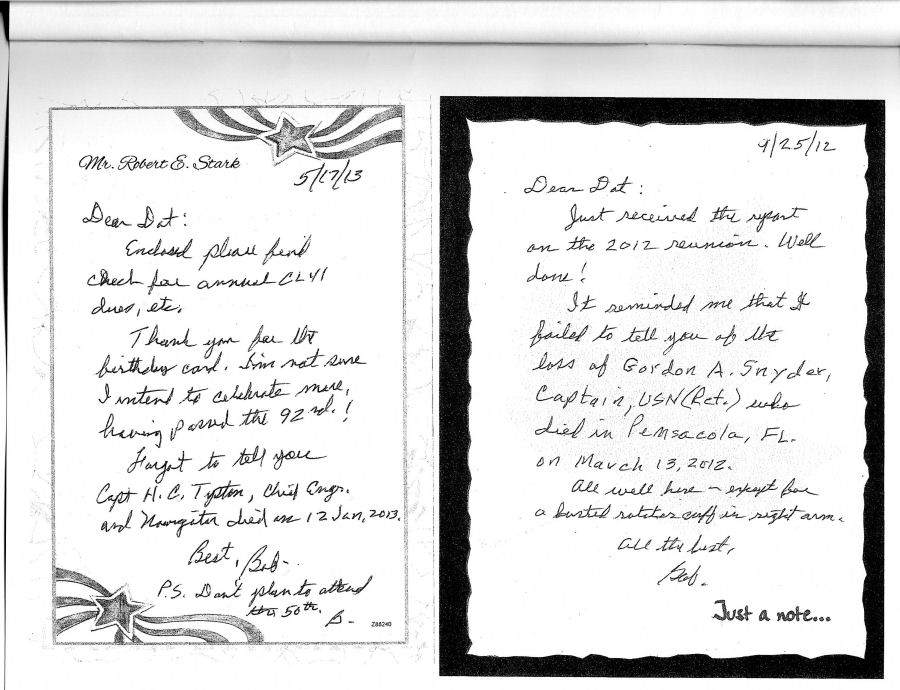 Mr. Robert E. Stark
5/17/13
Dear Dot:
Enclosed please find
check for annual CL41
dues, etc.
Thank you for the
birthday card. I'm not sure
I intend to celebrate more,
having passed the 92nd.!
Forgot to tell you
Capt H. C. Tipton, Chief Engr.
and Navigator died on 12 Jan, 2013.
Best, Bob-
P.S. Don't plan to attend
the 50th.
B-
Z88240
9/25/12
Dear Dot:
Just received the report
on the 2012 reunion. Well
done!
It reminded me that I
failed to tell you of the
loss of Gordon A. Snyder,
Captain, USN (Ret.) who
died in Pensacola, FL.
on March 13, 2012.
All well here - except for
a busted rotator cuff in right arm.
All the best,
Bob.
Just a note...